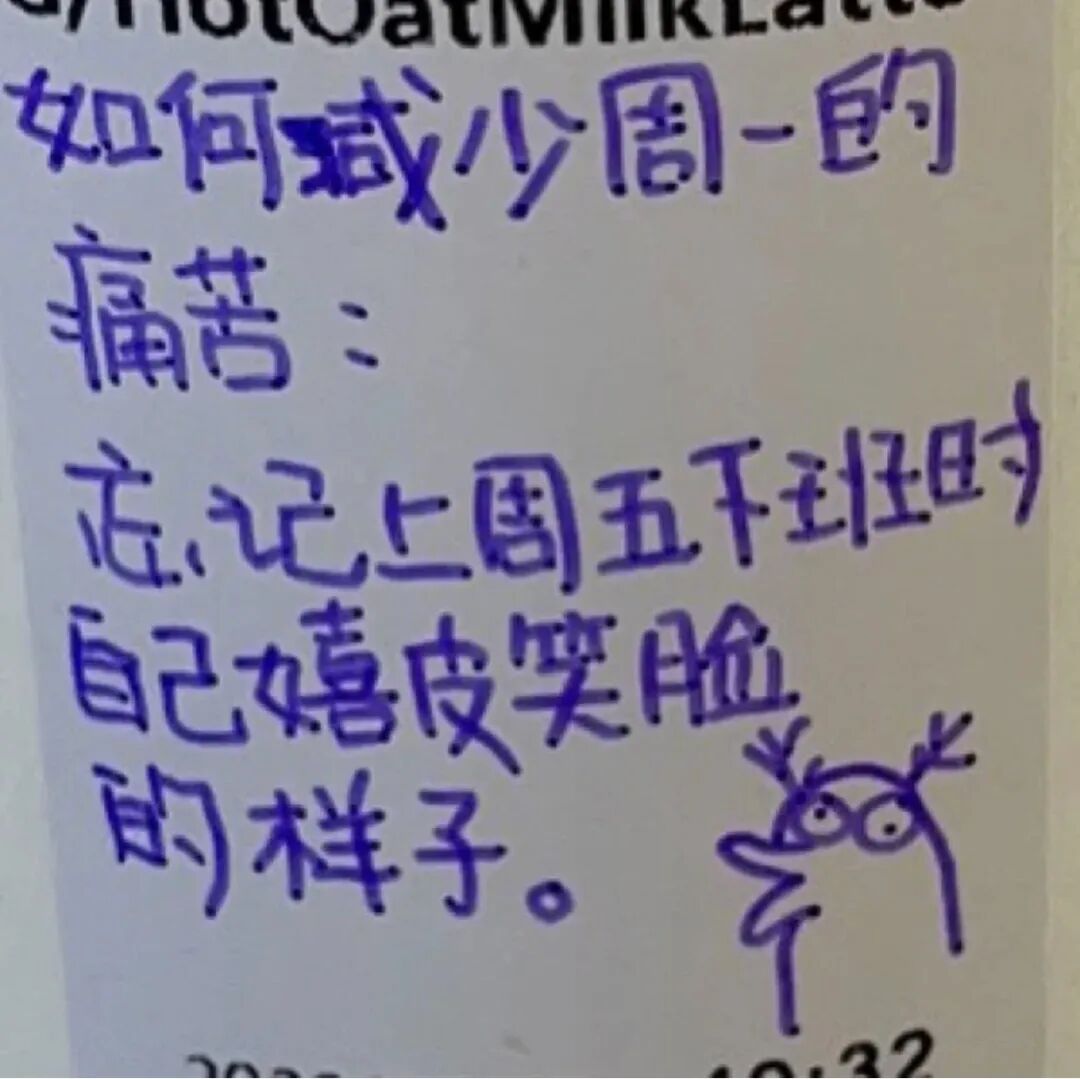 HotOatMilkLatte
如何减少周一的
痛苦：
忘记上周五下班时
自己嬉皮笑脸
的样子。